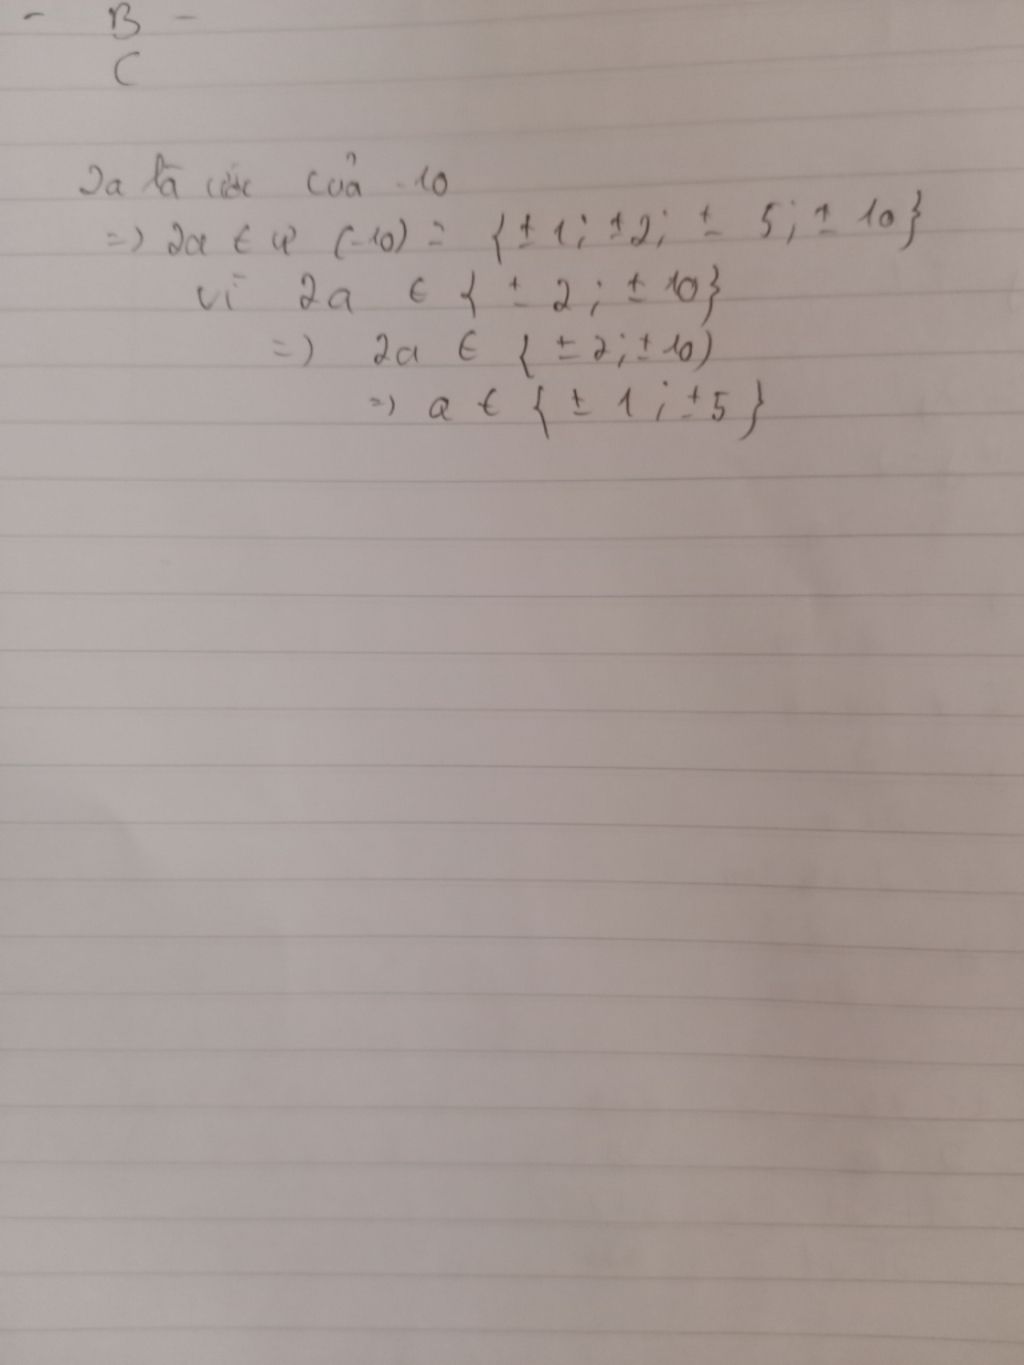 - B -
C
2a là ước của -10
=) 2a ∈ Ư (-10) = {± 1; ±2; ± 5; ± 10}
vì 2a ∈ { ± 2 ; ± 10}
=) 2a ∈ { ± 2; ± 10)
=) a ∈ { ± 1 ; ±5 }